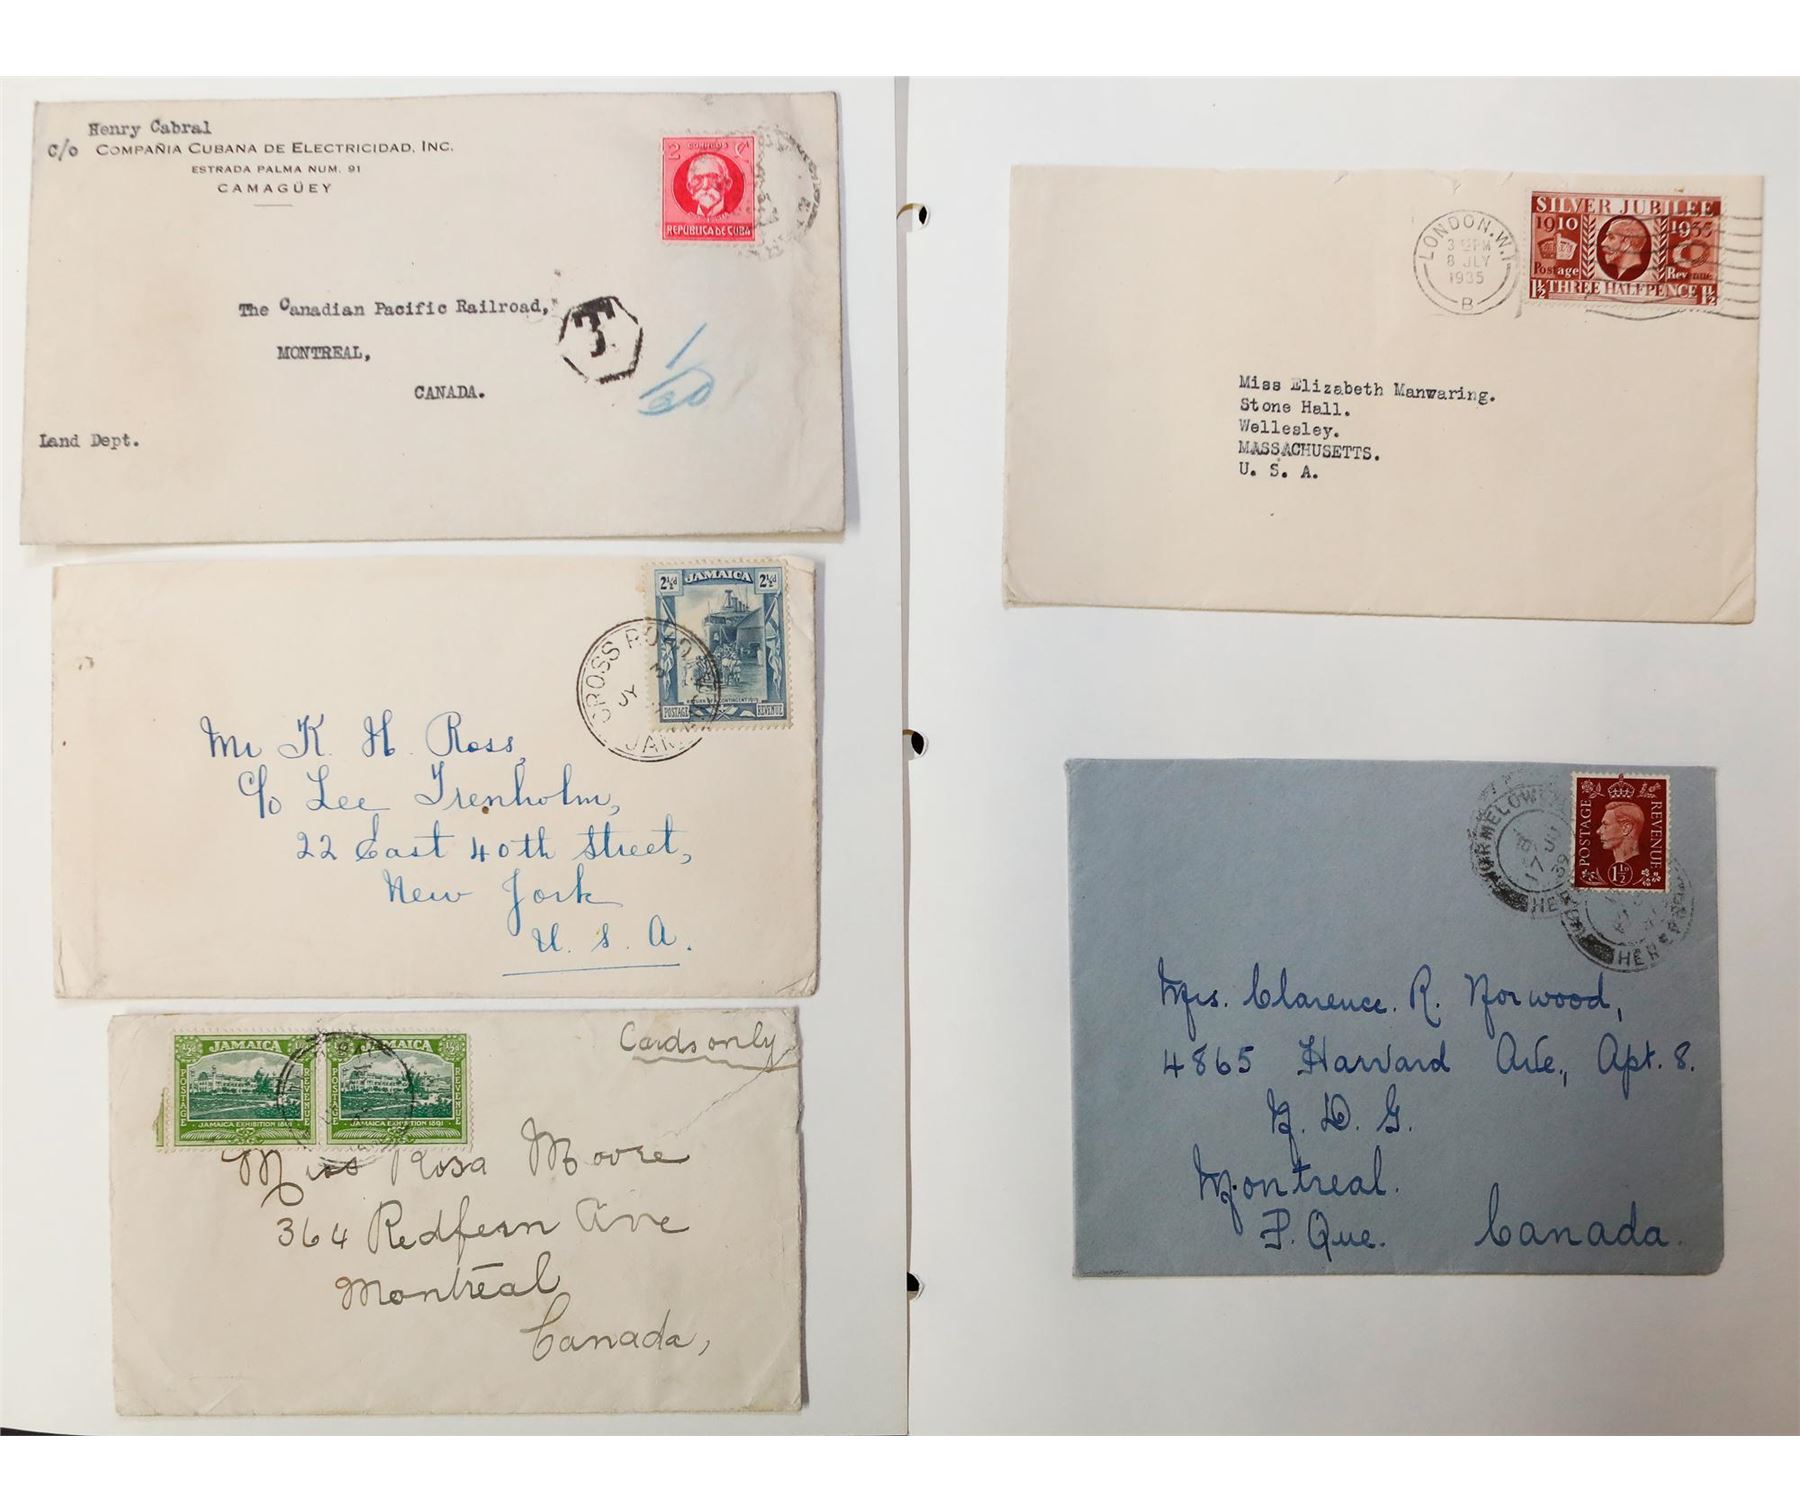 Henry Cabral
c/o COMPAÑIA CUBANA DE ELECTRICIDAD, INC.
ESTRADA PALMA NUM. 91
CAMAGÜEY
2 CORREOS C
REPUBLICA DE CUBA
The Canadian Pacific Railroad,
MONTREAL,
CANADA.
T
1/20
Land Dept.
2½d JAMAICA 2½d
POSTAGE REVENUE
CROSS ROADS
JY
JAMAICA
Mr K. H. Ross,
c/o Lee Trenholm,
22 East 40th Street,
New York
U. S. A.
Cards only
JAMAICA
POSTAGE REVENUE
JAMAICA EXHIBITION 1891
JAMAICA
POSTAGE REVENUE
JAMAICA EXHIBITION 1891
Miss Rosa Moore
364 Redfern Ave
Montreal
Canada,
LONDON. W.1
PM
8 JLY
1935
B
SILVER JUBILEE
1910 1935
Postage Revenue
1½ THREE HALFPENCE 1½
Miss Elizabeth Manwaring.
Stone Hall.
Wellesley.
MASSACHUSETTS.
U. S. A.
POSTAGE REVENUE
1½D
39
Mrs. Clarence. R. Norwood,
4865 Harvard Ave., Apt. 8.
N. D. G.
Montreal.
P. Que. Canada.